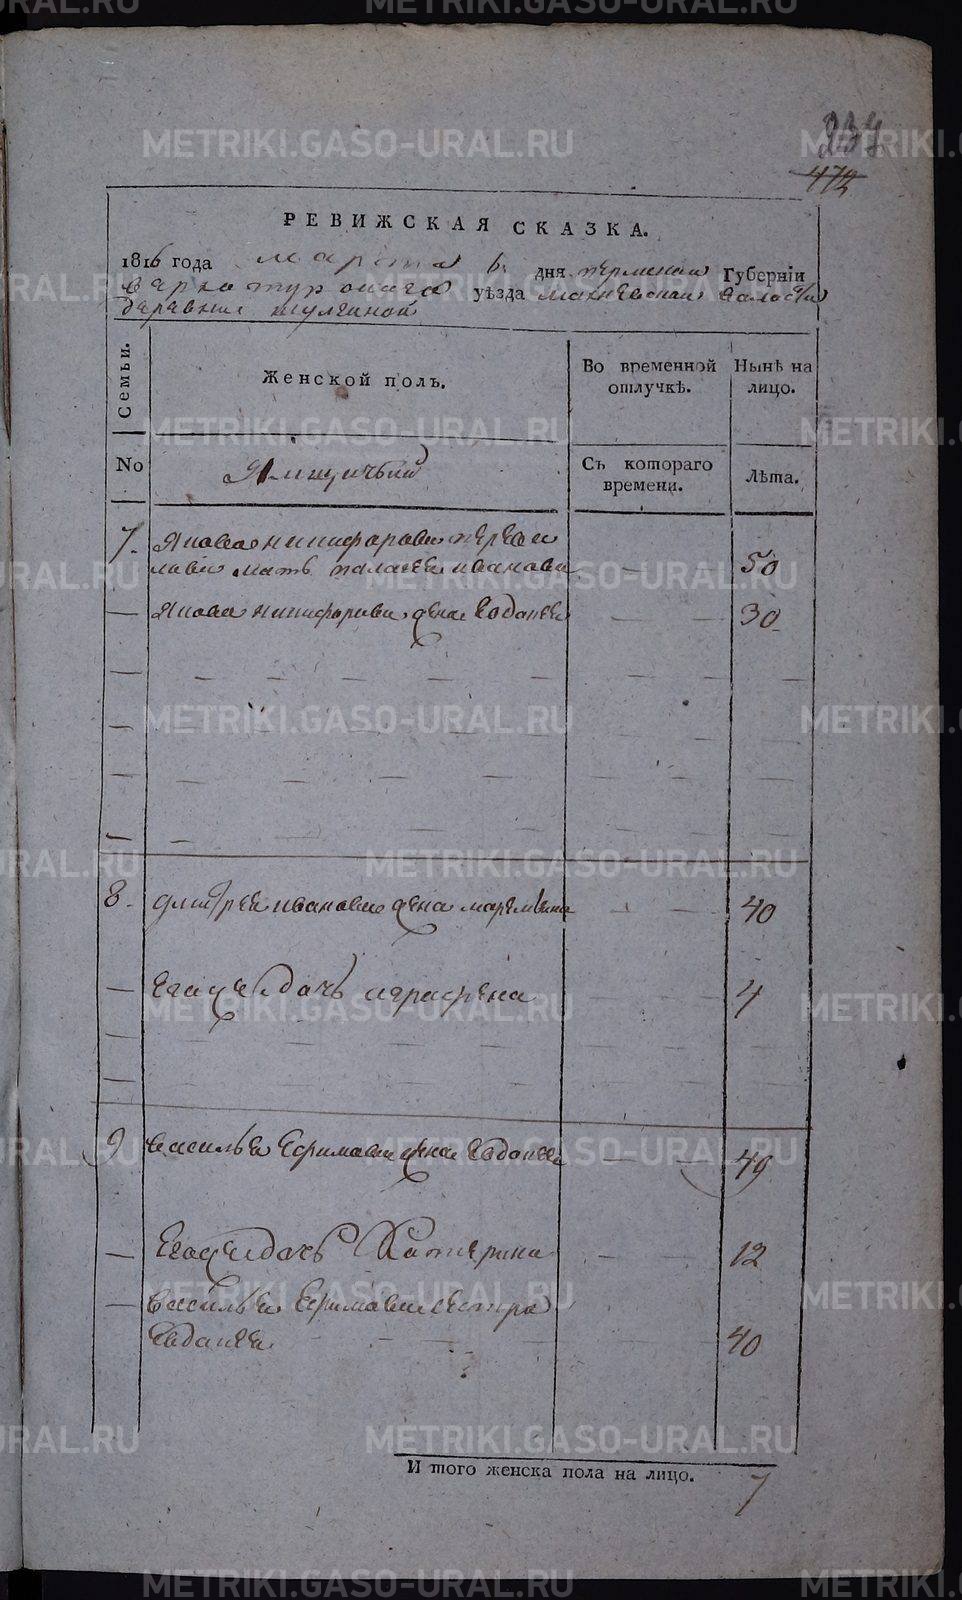 METRIKI.GASO-URAL.RU
237
472
РЕВИЖСКАЯ СКАЗКА.
1816 года марта 6. дня пермской Губернїи
верхотурскаго уѣзда махневской волости
деревни
Семьи.
Женской полъ.
Во временной отлучкѣ.
Нынѣ на лицо.
No
Ямщичьии
Съ котораго времени.
Лѣта.
7. Якова никифорова первои
мать палагея иванова — — 50
— Якова никифорова жена Евдокея — — 30
8. дмитрея иванова жена маремьяна — — 40
— Егож дочь аграфена — — 4
9 василья Ефимова жена Евдокея — — 49
— Егоже дочь Катерина — — 12
— василья Ефимова сестра
Евдокея — — — 40
И того женска пола на лицо. 7